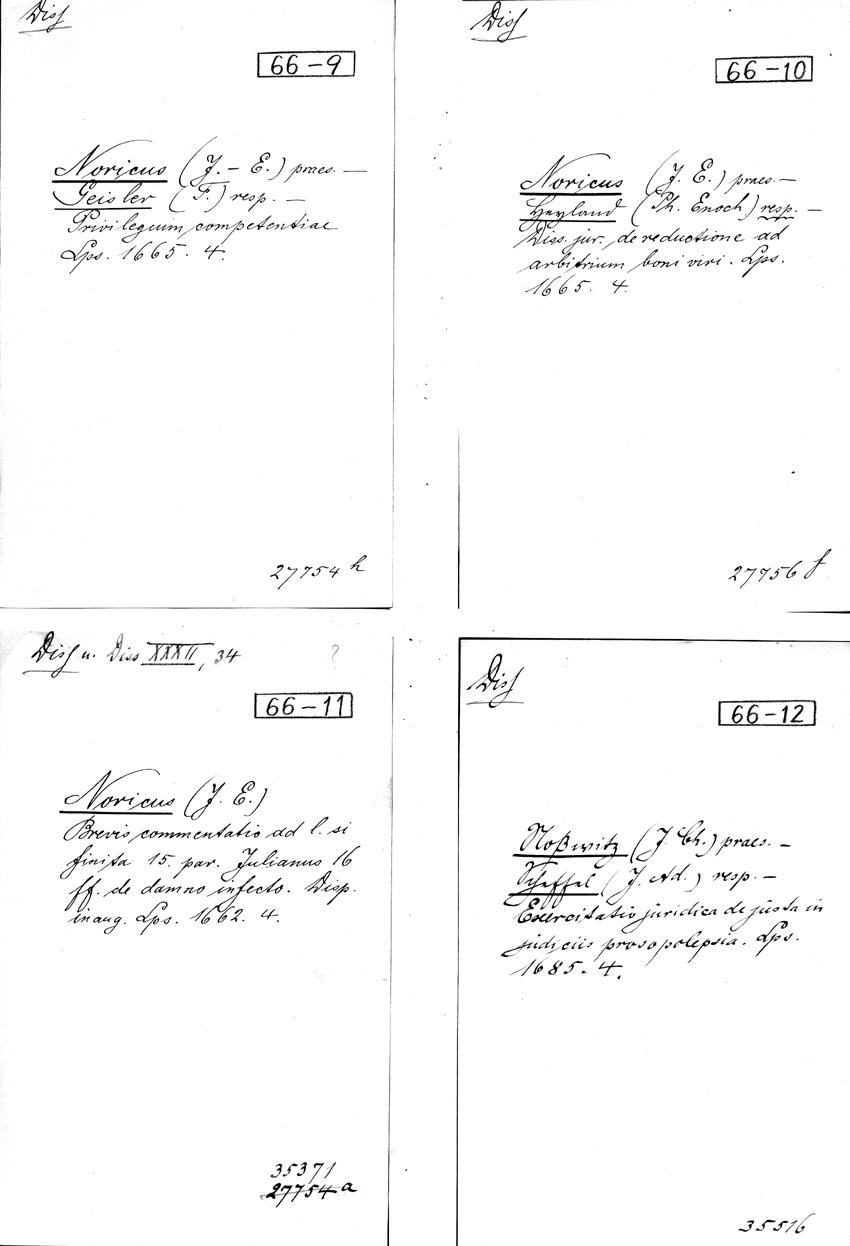 Diss
66-9
Noricus (J. - E.) praes. —
Geisler (F.) resp. —
Privilegium competentiae
Lps. 1665. 4.
27754 h
Diss
66-10
Noricus (J. E.) praes. —
Heyland (Ph. Enoch) resp. —
Diss. jur. de reductione ad
arbitrium boni viri. Lps.
1665. 4.
27756 f
Diss u. Diss XXXII, 34 ?
66-11
Noricus (J. E.)
Brevis commentatio ad l. si
finita 15. par. Julianus 16
ff. de damno infecto. Disp.
inaug. Lps. 1662. 4.
35371
27754 a
Diss
66-12
Noßwitz (J. Ch.) praes. —
Scheffel (J. Ad.) resp. —
Exercitatio juridica de justa in
judiciis prosopolepsia. Lps.
1685. 4.
35516